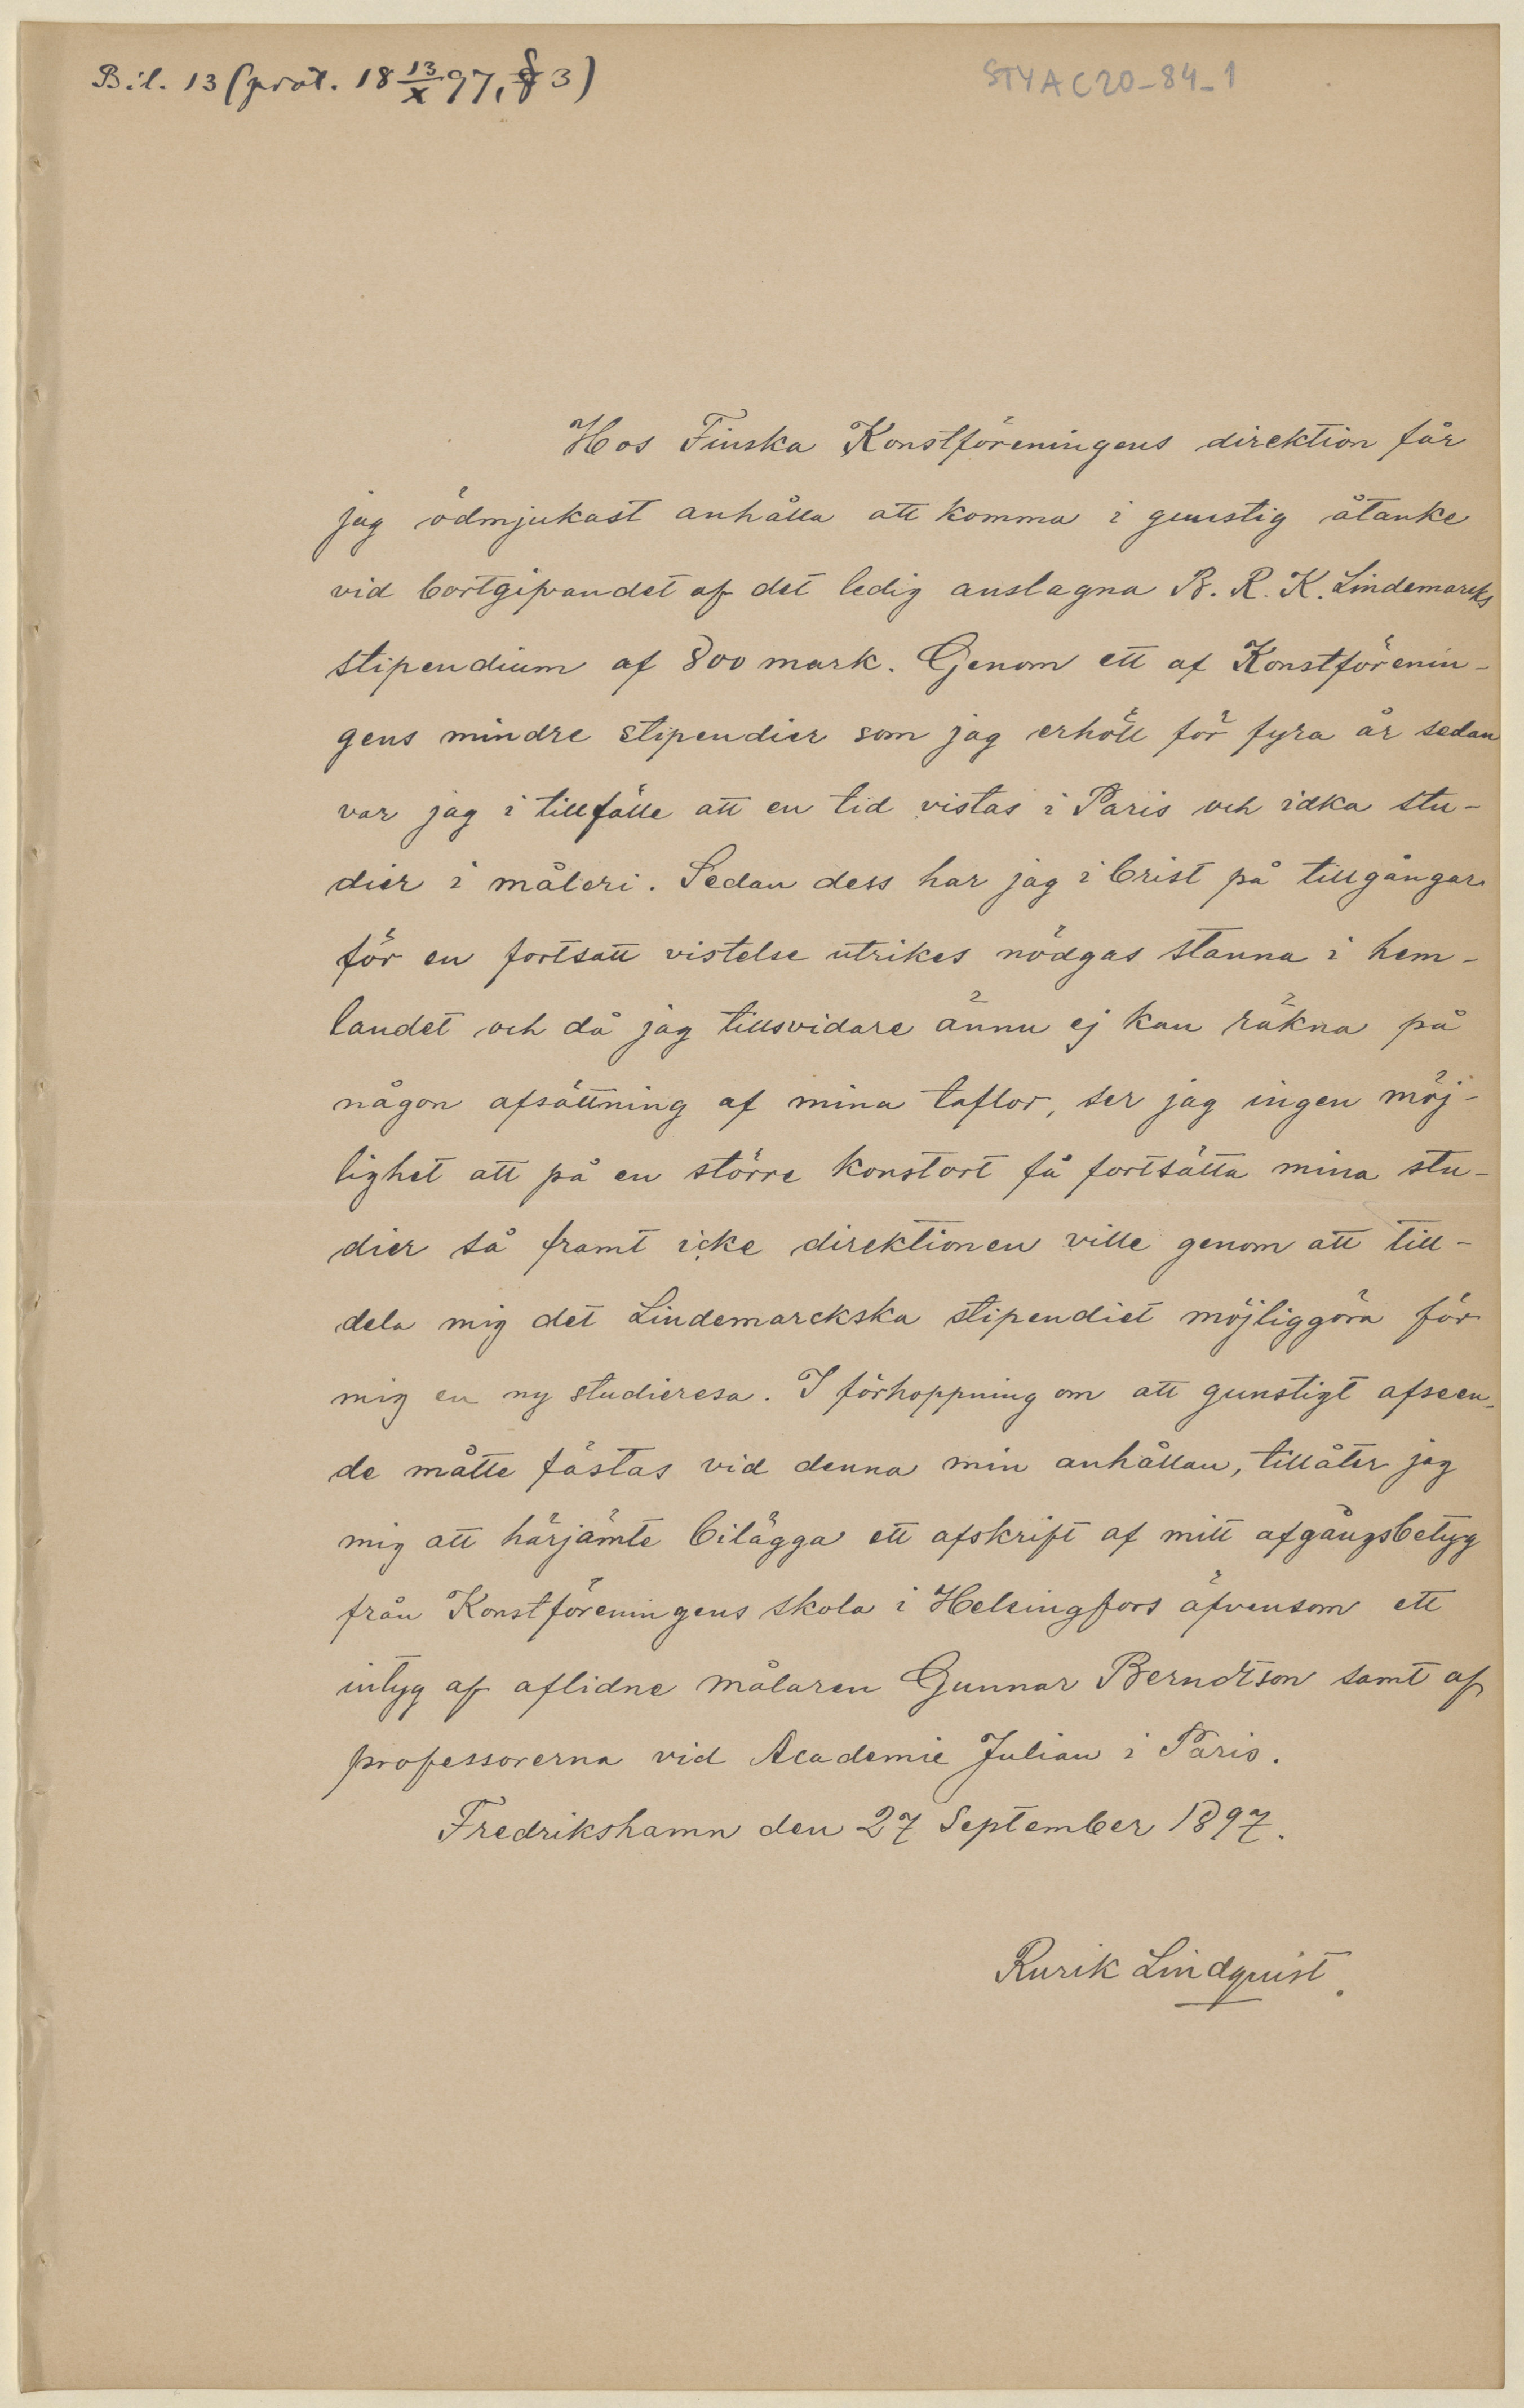 Bil. 13 (prot. 18 13/X 97, § 3)
STYA C20-84-1
Hos Finska Konstföreningens direktion får
jag ödmjukast anhålla att komma i gunstig åtanke
vid bortgifvandet af det ledig anslagna B. R. K. Lindemarcks
stipendium af 800 mark. Genom ett af Konstförenin-
gens mindre stipendier som jag erhöll för fyra år sedan
var jag i tillfälle att en tid vistas i Paris och idka stu-
dier i måleri. Sedan dess har jag i brist på tillgångar
för en fortsatt vistelse utrikes nödgas stanna i hem-
landet och då jag tillsvidare ännu ej kan räkna på
någon afsättning af mina taflor, ser jag ingen möj-
lighet att på en större konstort få fortsätta mina stu-
dier så framt icke direktionen ville genom att till-
dela mig det Lindemarckska stipendiet möjliggöra för
mig en ny studieresa. I förhoppning om att gunstigt afseen-
de måtte fästas vid denna min anhållan, tillåter jag
mig att härjämte bilägga ett afskrift af mitt afgångsbetyg
från Konstföreningens skola i Helsingfors äfvensom ett
intyg af aflidne målaren Gunnar Berndtson samt af
professorerna vid Academie Julian i Paris.
Fredrikshamn den 27 September 1897.
Rurik Lindquist.